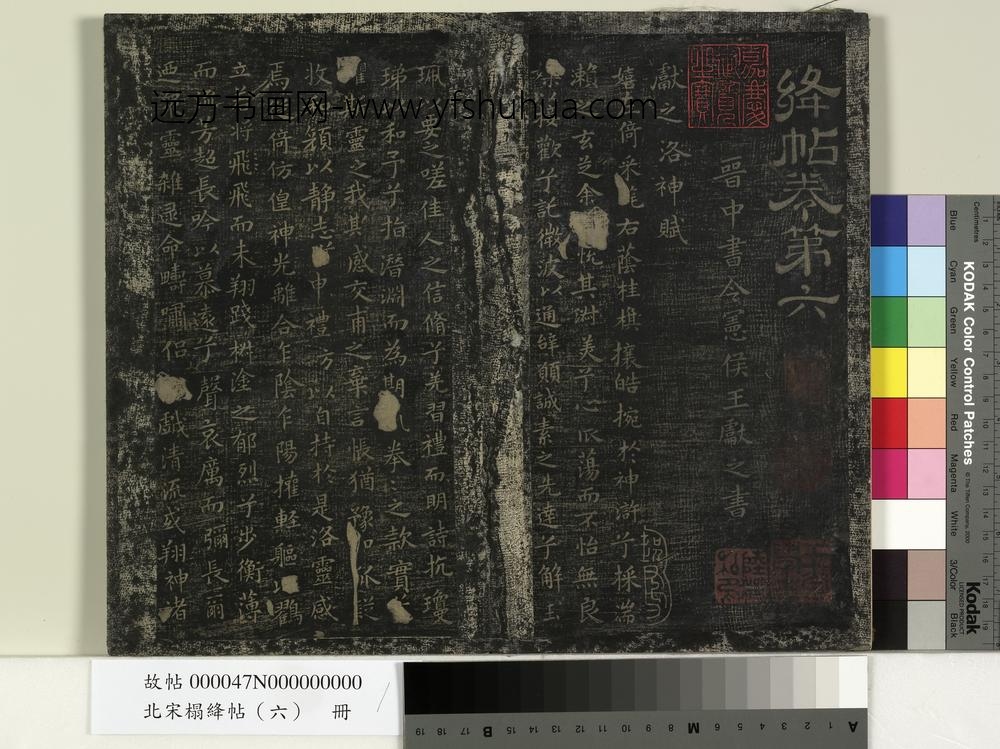 絳帖卷第六
晉中書令憲侯王獻之書
獻之洛神賦
嬉左倚采旄右蔭桂旗攘皓捥於神滸兮採湍
瀨玄芝余悅其淑美兮心振蕩而不怡無良
歡兮託微波以通辭願誠素之先達兮解玉
珮要之嗟佳人之信脩兮羌習禮而明詩抗瓊
珶和予兮指潛淵而為期拳〻之款實
靈之我欺感交甫之棄言悵猶豫而狐疑
收顏以靜志兮申禮防以自持於是洛靈感
焉倚仿偟神光離合乍陰乍陽擢軽軀以鶴
立將飛飛而未翔踐椒塗之郁烈兮步衡薄
而芳超長吟以慕遠兮聲哀厲而彌長爾
迺靈雜遝命疇嘯侶戲清流或翔神渚
嘉慶御覽之寶
远方书画网-www.yfshuhua.com
故帖 000047N000000000
北宋榻絳帖（六） 冊
KODAK Color Control Patches
Kodak
LICENSED PRODUCT
© The Tiffen Company, 2000
Centimetres
Blue
Cyan
Green
Yellow
Red
Magenta
White
3/Color
Black
A 1 2 3 4 5 6 M 8 9 10 11 12 13 14 15 B 17 18 19